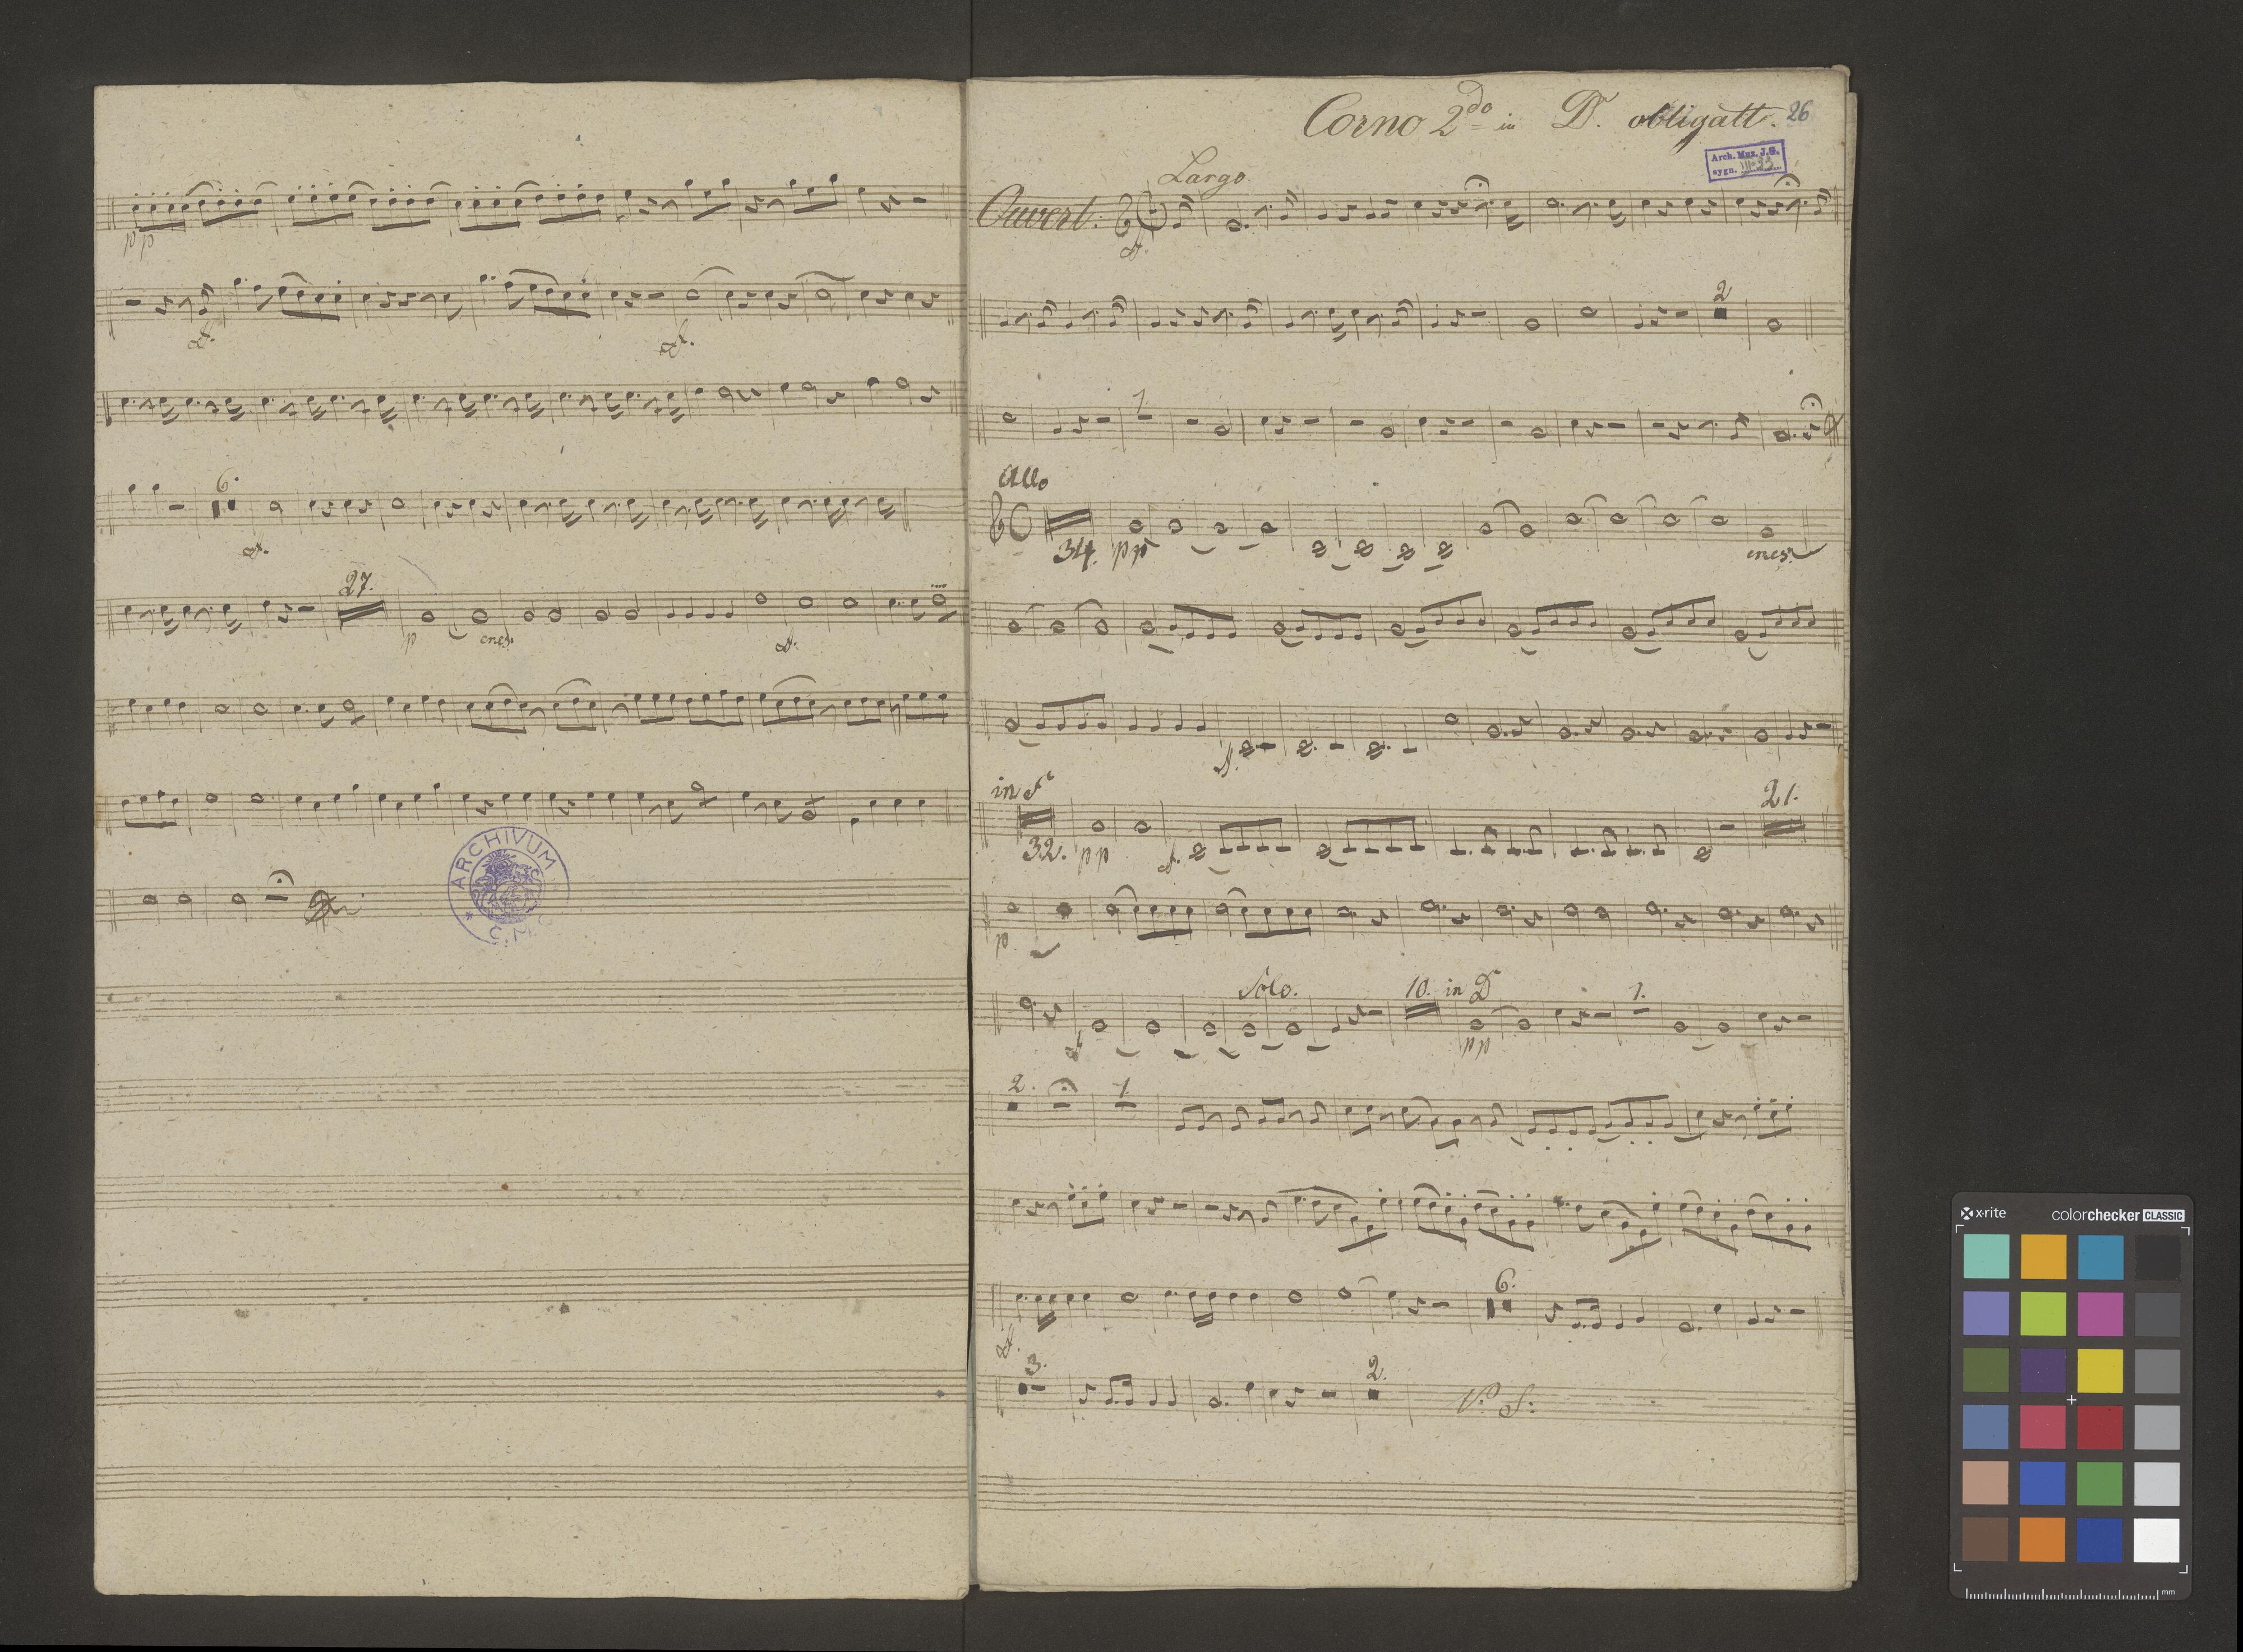 pp
6.
27.
p cres.
ARCHIVUM
C.M.
Corno 2do in D. obligatt. 26
Arch. Muz. J.G.
sygn. III-23
Largo
Ouvert:
2
1
Allo
34. pp cres.
in F
32. pp 21.
p
Solo. 10. in D 1.
pp
2. 1.
6.
3. 2. V. S:
x-rite colorchecker CLASSIC
mm